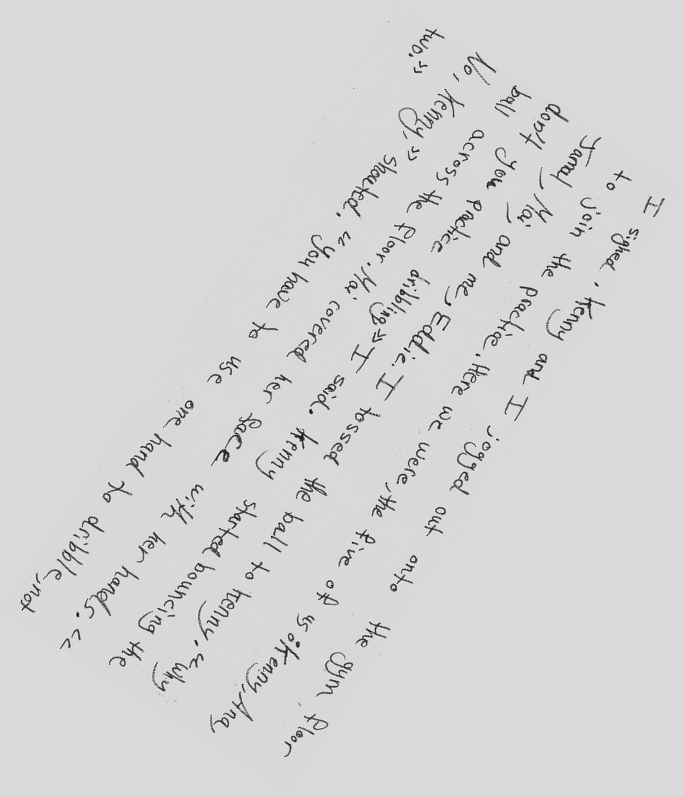 I sighed. Kenny and I jogged out onto the gym floor
to join the practice. Here we were, the five of us: Kenny, Ana,
Jamal, Mai, and me, Eddie. I tossed the ball to Kenny. "Why
don't you practice dribbling" I said. Kenny started bouncing the
ball across the floor. Mai covered her face with her hands. "
No, Kenny," shouted. "you have to use one hand to dribble, not
two."